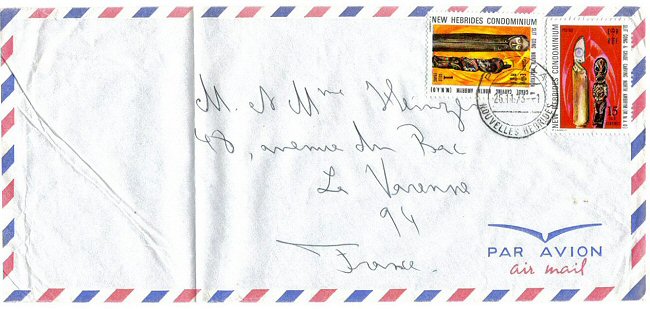 NEW HEBRIDES CONDOMINIUM
NEW HEBRIDES CONDOMINIUM
15
1
NOUVELLES HEBRIDES
M. et Mme
48, avenue du Bac
La Varenne
94
France.
PAR AVION
air mail